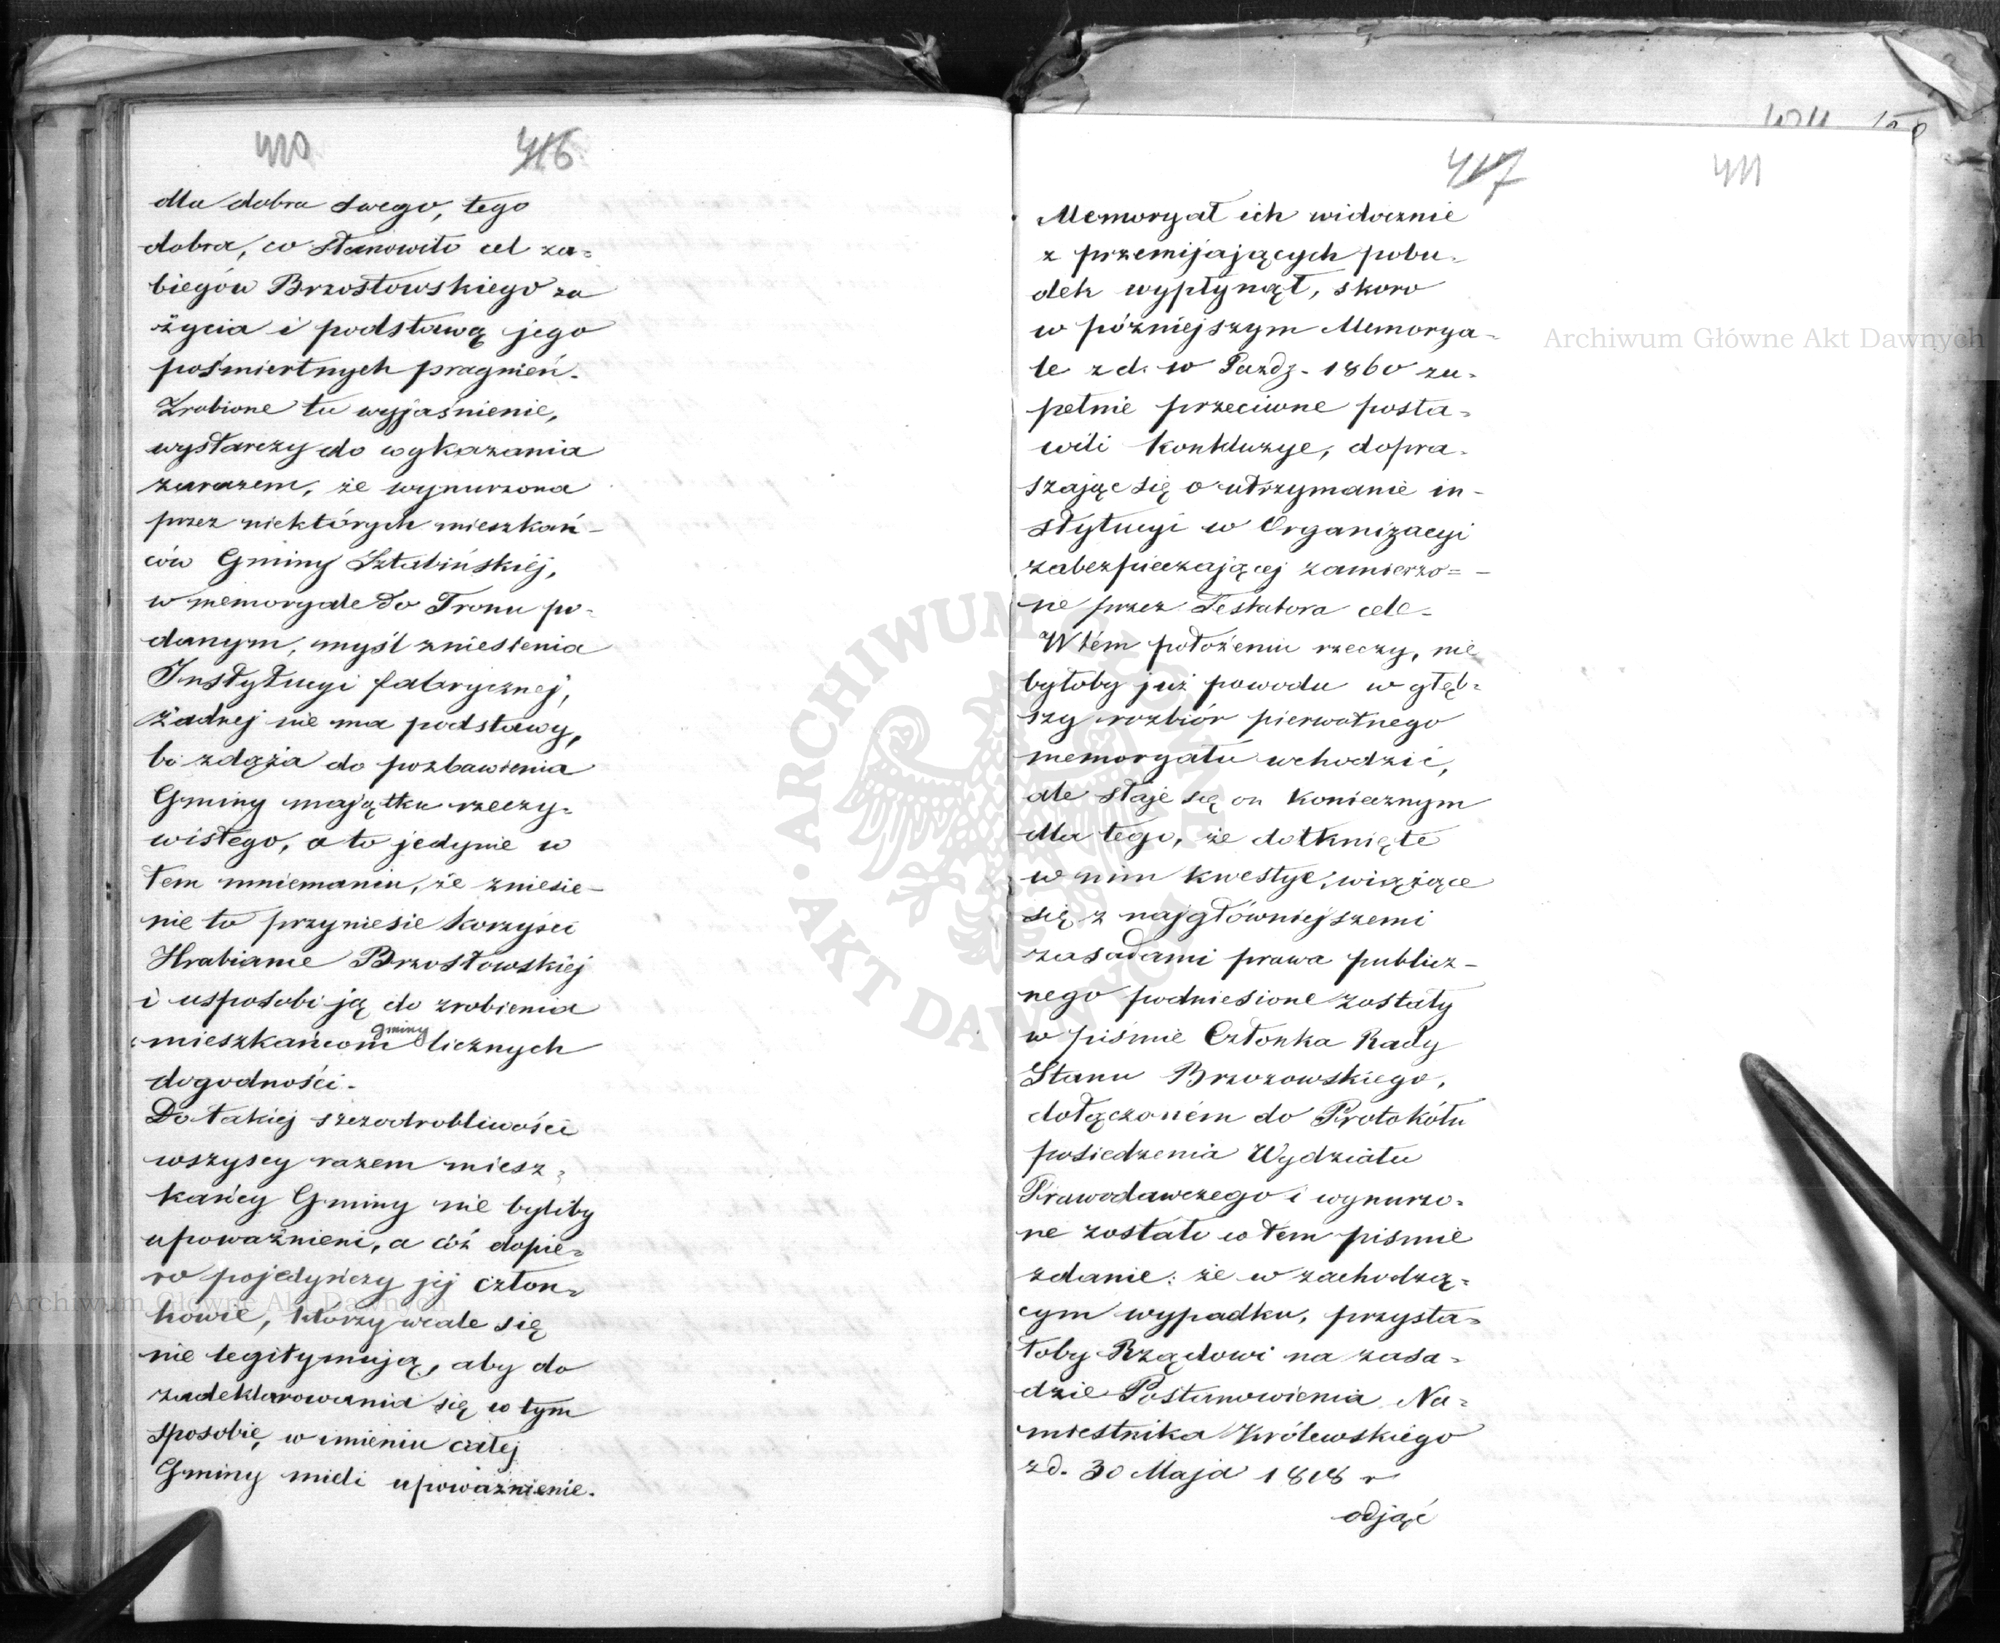 410 416
dla dobra swego, tego
dobra, co stanowiło cel za-
biegów Brzostowskiego za
życia i podstawą jego
pośmiertnych pragnień.
Zrobione tu wyjaśnienie,
wystarczy do wykazania
zarazem, że wynurzona
przez niektórych mieszkań-
ców Gminy Sztabińskiéj,
w memoryale do Tronu po-
danym, myśl zniesienia
Instytucyi fabrycznej,
żadnej nie ma podstawy,
bo zdąża do pozbawienia
Gminy majątku rzeczy-
wistego, a to jedynie w
tem mniemaniu, że zniesie-
nie to przyniesie korzyści
Hrabiance Brzostowskiéj
i usposobi ją do zrobienia
mieszkańcom gminy licznych
dogodności.
Do takiej szczodrobliwości
wszyscy razem miesz-
kańcy Gminy nie byliby
upoważnieni, a cóż dopie-
ro pojedyńczy jéj człon-
kowie, którzy wcale się
nie legitymują, aby do
zadeklarowania się w tym
sposobie, w imieniu całej
Gminy mieli upoważnienie.
417 411
Memoryał ich widocznie
z przemijających pobu-
dek wypłynął, skoro
w późniejszym Memorya-
le z d. w Pazdz. 1860 zu-
pełnie przeciwne posta-
wili konkluzye, dopra-
szając się o utrzymanie in-
stytucyi w Organizacyi
zabezpieczającej zamierzo-
ne przez Testatora cele-
W tém położeniu rzeczy, nie
byłoby już powodu w głęb-
szy rozbiór pierwotnego
memoryału wchodzić,
ale staje się on koniecznym
dla tego, że dotknięte
w nim kwestye, wiążące
się z najgłówniejszemi
zasadami prawa publicz-
nego podniesione zostały
w piśmie Członka Rady
Stanu Brzozowskiego,
dołączoném do Protokółu
posiedzenia Wydziału
Prawodawczego i wynurzo-
ne zostało w tem piśmie
zdanie: że w zachodzą-
cym wypadku, przysta-
łoby Rządowi na zasa-
dzie Postanowienia Na-
miestnika Królewskiego
z d. 30 Maja 1818 r
odjąć
Archiwum Główne Akt Dawnych
Archiwum Główne Akt Dawnych
ARCHIWUM GŁÓWNE AKT DAWNYCH